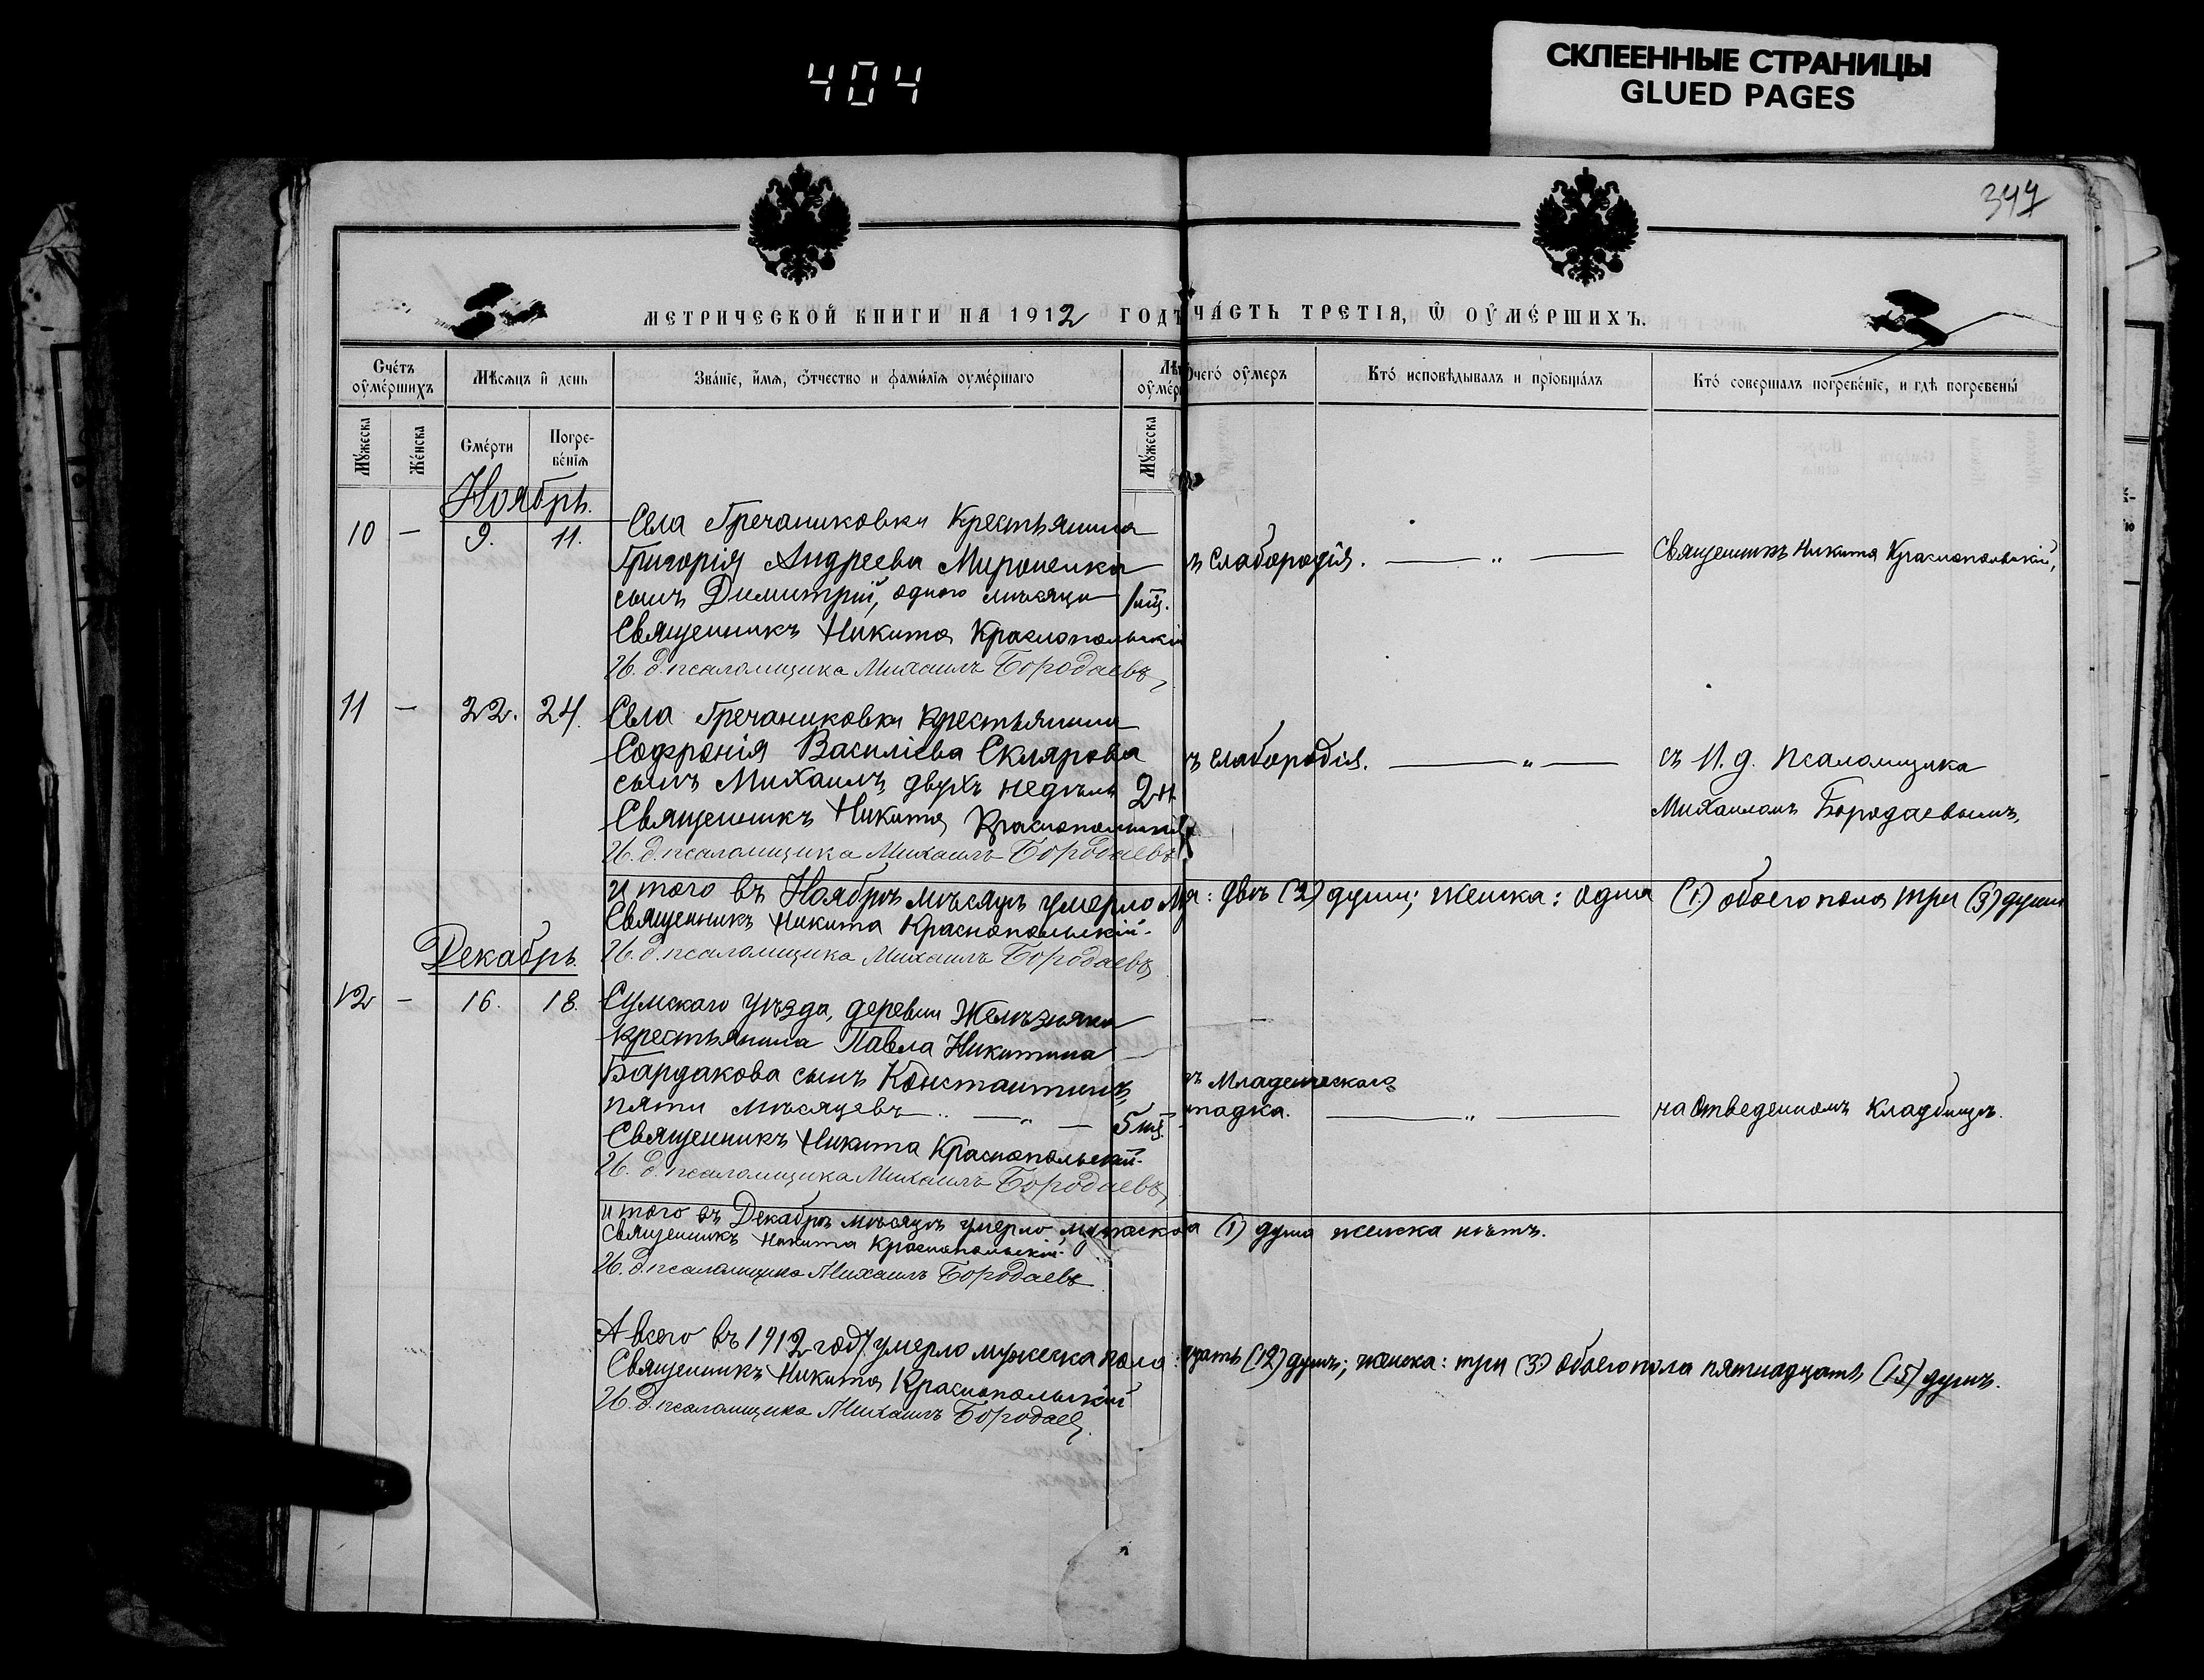 404
СКЛЕЕННЫЕ СТРАНИЦЫ
GLUED PAGES
347
МЕТРИЧЕСКОЙ КНИГИ НА 1912 ГОДЪ
ЧА́СТЬ ТРЕТІЯ, Ѿ ОУ҆МЕ́РШИХЪ.
Сче́тъ оу҆ме́ршихъ
Мѣсяцъ и҆ день
Зва́нїе, и҆́мя, ѻ҆́тчество и фами́лїя оуме́ршаго
Лѣ
оу҆ме́р
чегѡ̀ оу҆меръ
Кто́ исповѣ́дывалъ и прїобща́лъ
Кто́ совершалъ погребе́нїе, и гдѣ̀ погребены́
Му́жеска
Же́нска
Сме́рти
Погре-
бе́нїя
Му́жеска
Ноябрь.
10 — 9. 11.
Села Гречаниковки Крестьянина
Григорія Андреева Мироненка
сынъ Димитрій, одного мѣсяца
1 мц.
Священникъ Никита Краснопольскій
И. д. псаломщика Михаилъ Бородаевъ
ъ слабородія. — „ —
Священникъ Никита Краснопольскій,
11 — 22. 24.
Села Гречаниковки Крестьянина
Софронія Василіева Склярова
сынъ Михаилъ, двухъ недѣль
2 н.
Священникъ Никита Краснопольскій
И. д. псаломщика Михаилъ Бородаевъ
ъ слабородія. — „ —
съ И. д. псаломщика
Михаиломъ Бородаевымъ,
Итого въ Ноябрѣ мѣсяцѣ умерло М
а: двѣ (2) души; женска: одна (1.) обоего пола три (3) души
Священникъ Никита Краснопольскій.
И. д. псаломщика Михаилъ Бородаевъ
Декабрь.
12 — 16. 18.
Сумскаго уѣзда, деревни Желѣзняка
крестьянина Павла Никитина
Бардакова сынъ Константинъ,
пяти мѣсяцевъ „ — „ —
5 мц.
Священникъ Никита Краснопольскій.
И. д. псаломщика Михаилъ Бородаевъ
ъ Младенческаго
падка. — „ —
на Отведенномъ кладбищѣ.
Итого въ Декабрѣ мѣсяцѣ умерло мужеска
(1) душа женска нѣтъ.
Священникъ Никита Краснопольскій.
И. д. псаломщика Михаилъ Бородаевъ
А всего въ 1912 году умерло мужеска пола:
цать (12) душъ; женска: три (3.) Обоего пола пятнадцать (15) душъ.
Священникъ Никита Краснопольскій
И. д. псаломщика Михаилъ Бородаев